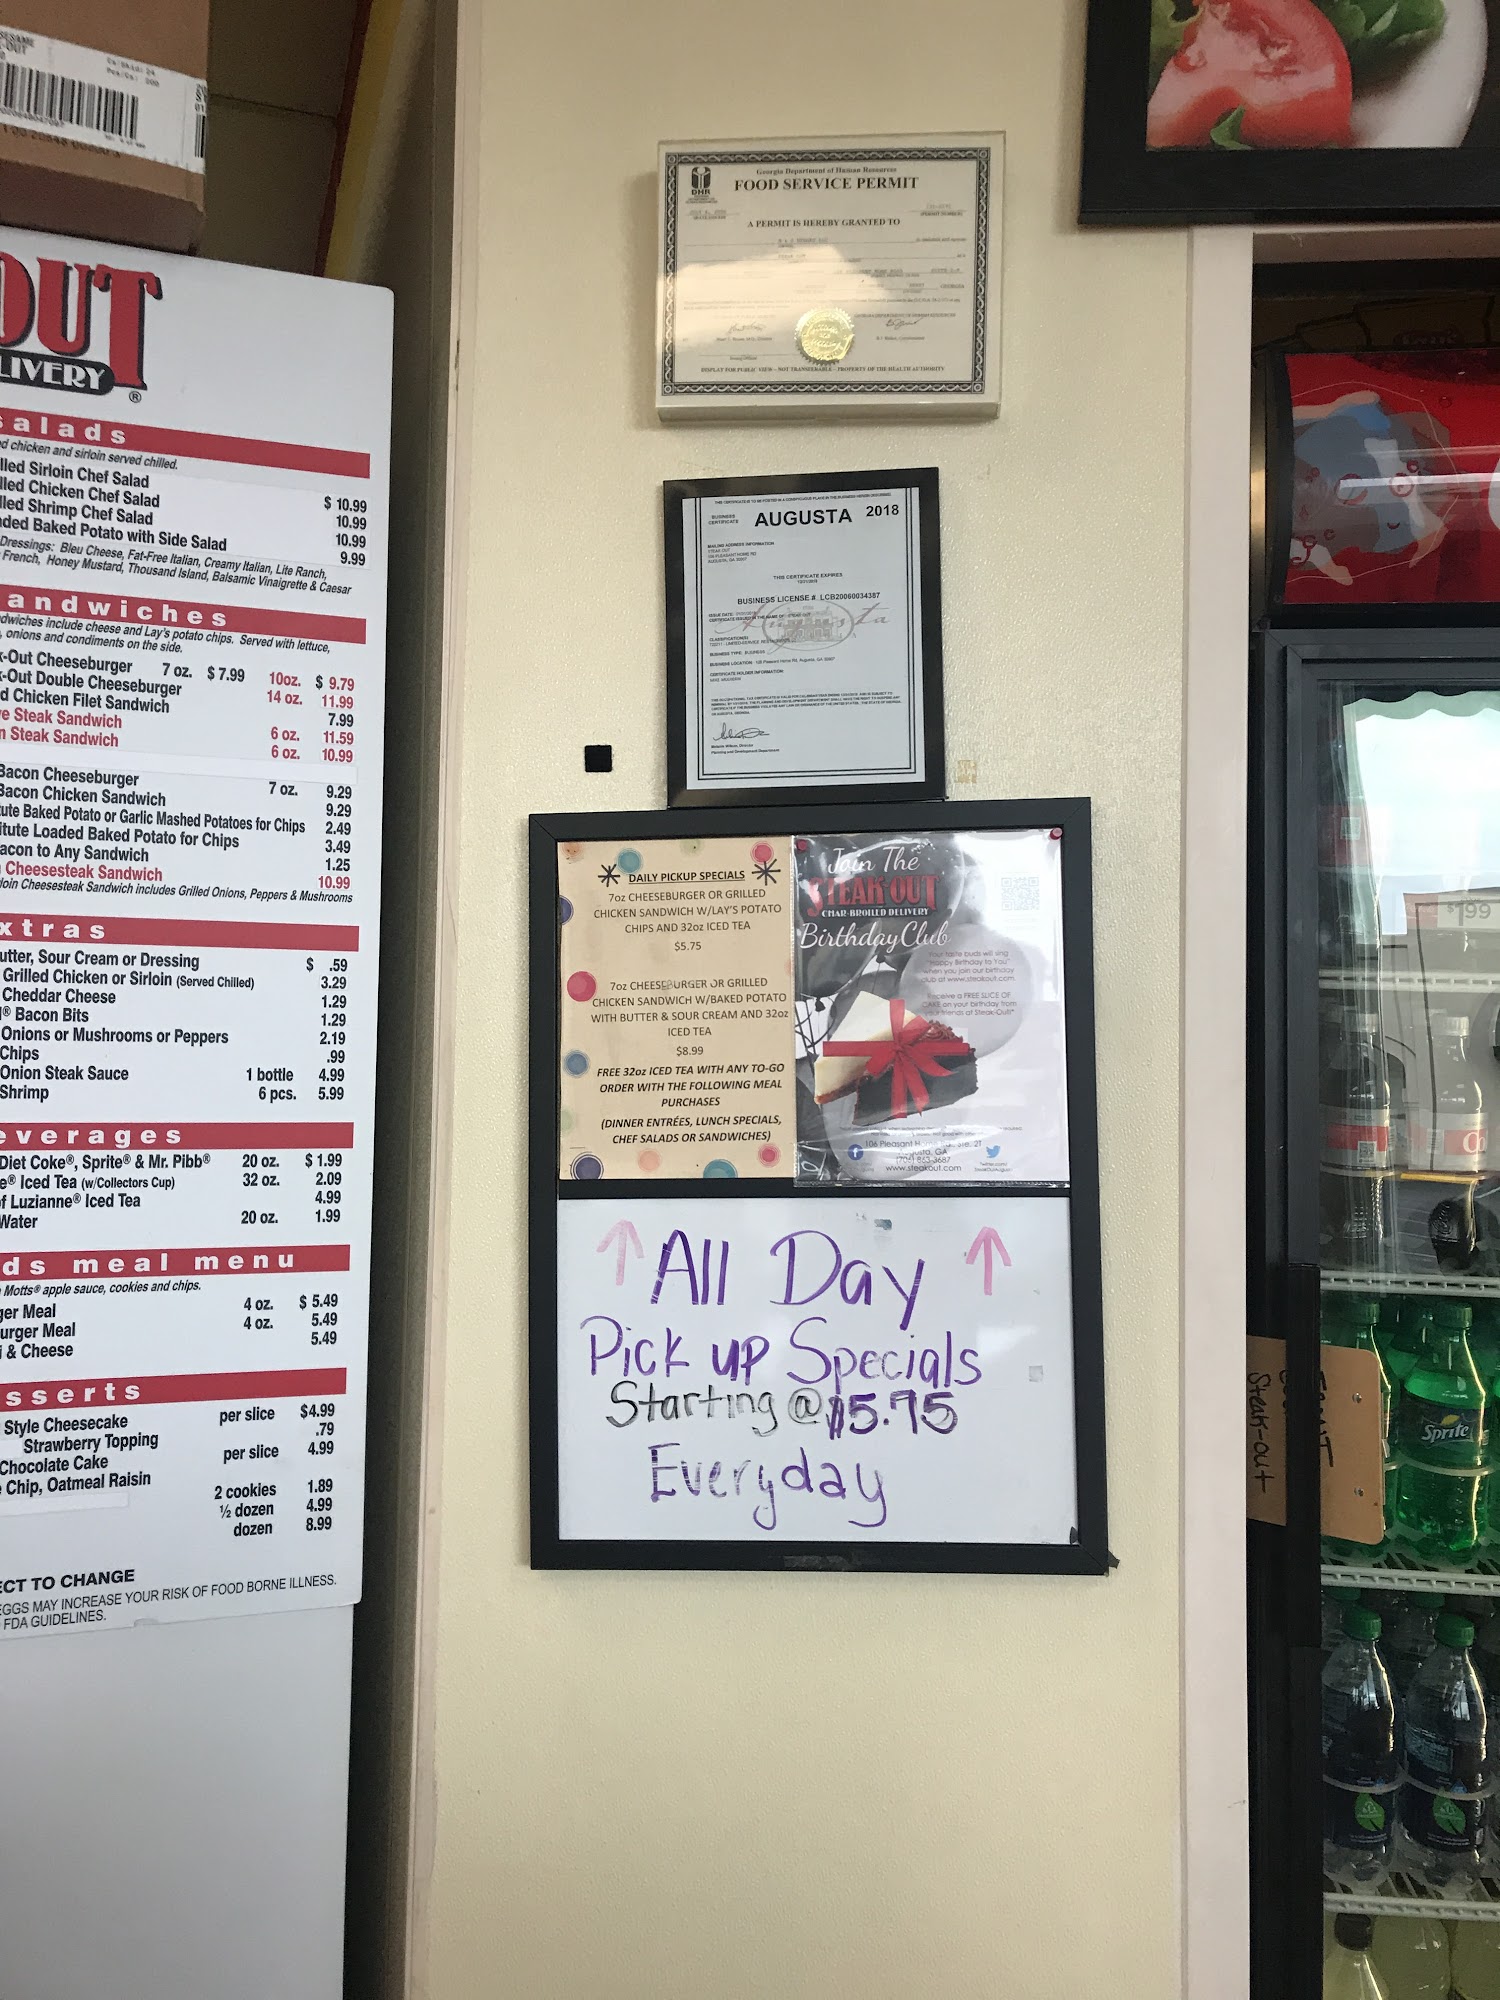 OUT
LIVERY
®
salads
d chicken and sirloin served chilled.
lled Sirloin Chef Salad $ 10.99
lled Chicken Chef Salad 10.99
lled Shrimp Chef Salad 10.99
ded Baked Potato with Side Salad 9.99
Dressings: Bleu Cheese, Fat-Free Italian, Creamy Italian, Lite Ranch,
French, Honey Mustard, Thousand Island, Balsamic Vinaigrette & Caesar
andwiches
dwiches include cheese and Lay's potato chips. Served with lettuce,
, onions and condiments on the side.
k-Out Cheeseburger 7 oz. $ 7.99 10oz. $ 9.79
k-Out Double Cheeseburger 14 oz. 11.99
d Chicken Filet Sandwich 7.99
ve Steak Sandwich 6 oz. 11.59
n Steak Sandwich 6 oz. 10.99
Bacon Cheeseburger 7 oz. 9.29
Bacon Chicken Sandwich 9.29
tute Baked Potato or Garlic Mashed Potatoes for Chips 2.49
itute Loaded Baked Potato for Chips 3.49
acon to Any Sandwich 1.25
Cheesesteak Sandwich 10.99
loin Cheesesteak Sandwich includes Grilled Onions, Peppers & Mushrooms
xtras
utter, Sour Cream or Dressing $ .59
Grilled Chicken or Sirloin (Served Chilled) 3.29
Cheddar Cheese 1.29
® Bacon Bits 1.29
Onions or Mushrooms or Peppers 2.19
Chips .99
Onion Steak Sauce 1 bottle 4.99
Shrimp 6 pcs. 5.99
everages
Diet Coke®, Sprite® & Mr. Pibb® 20 oz. $ 1.99
e® Iced Tea (w/Collectors Cup) 32 oz. 2.09
of Luzianne® Iced Tea 4.99
Water 20 oz. 1.99
ds meal menu
Motts® apple sauce, cookies and chips.
ger Meal 4 oz. $ 5.49
urger Meal 4 oz. 5.49
i & Cheese 5.49
sserts
Style Cheesecake per slice $4.99
Strawberry Topping .79
Chocolate Cake per slice 4.99
Chip, Oatmeal Raisin 2 cookies 1.89
½ dozen 4.99
dozen 8.99
ECT TO CHANGE
EGGS MAY INCREASE YOUR RISK OF FOOD BORNE ILLNESS.
FDA GUIDELINES.
DHR
Georgia Department of Human Resources
FOOD SERVICE PERMIT
A PERMIT IS HEREBY GRANTED TO
DISPLAY FOR PUBLIC VIEW - NOT TRANSFERABLE - PROPERTY OF THE HEALTH AUTHORITY
BUSINESS
CERTIFICATE
AUGUSTA 2018
MAILING ADDRESS INFORMATION
STEAK OUT
AUGUSTA, GA 30907
THIS CERTIFICATE EXPIRES
BUSINESS LICENSE # LCB20060034387
BUSINESS LOCATION:
CERTIFICATE HOLDER INFORMATION
Planning and Development Department
DAILY PICKUP SPECIALS
7oz CHEESEBURGER OR GRILLED
CHICKEN SANDWICH W/LAY'S POTATO
CHIPS AND 32oz ICED TEA
$5.75
7oz CHEESEBURGER OR GRILLED
CHICKEN SANDWICH W/BAKED POTATO
WITH BUTTER & SOUR CREAM AND 32oz
ICED TEA
$8.99
FREE 32oz ICED TEA WITH ANY TO-GO
ORDER WITH THE FOLLOWING MEAL
PURCHASES
(DINNER ENTRÉES, LUNCH SPECIALS,
CHEF SALADS OR SANDWICHES)
Join The
STEAK OUT
CHAR-BROILED DELIVERY
Birthday Club
Your taste buds will sing
"Happy Birthday to You"
when you join our birthday
club at www.steakout.com.
Receive a FREE SLICE OF
CAKE on your birthday from
your friends at Steak-Out!*
106 Pleasant Home Rd., Ste. 21
Augusta, GA
(706) 863-3687
www.steakout.com
All Day
Pick up Specials
Starting @ $5.75
Everyday
$1.99
Steak-out
Sprite